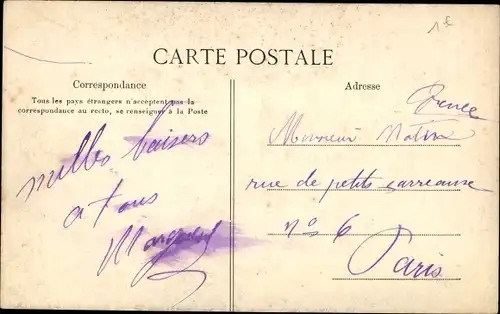 1f
CARTE POSTALE
Correspondance
Tous les pays étrangers n'acceptent pas la
correspondance au recto, se renseigner à la Poste
mille baisers
a tous
Adresse
Monsieur
rue de petits carreaux
nos 6
Paris